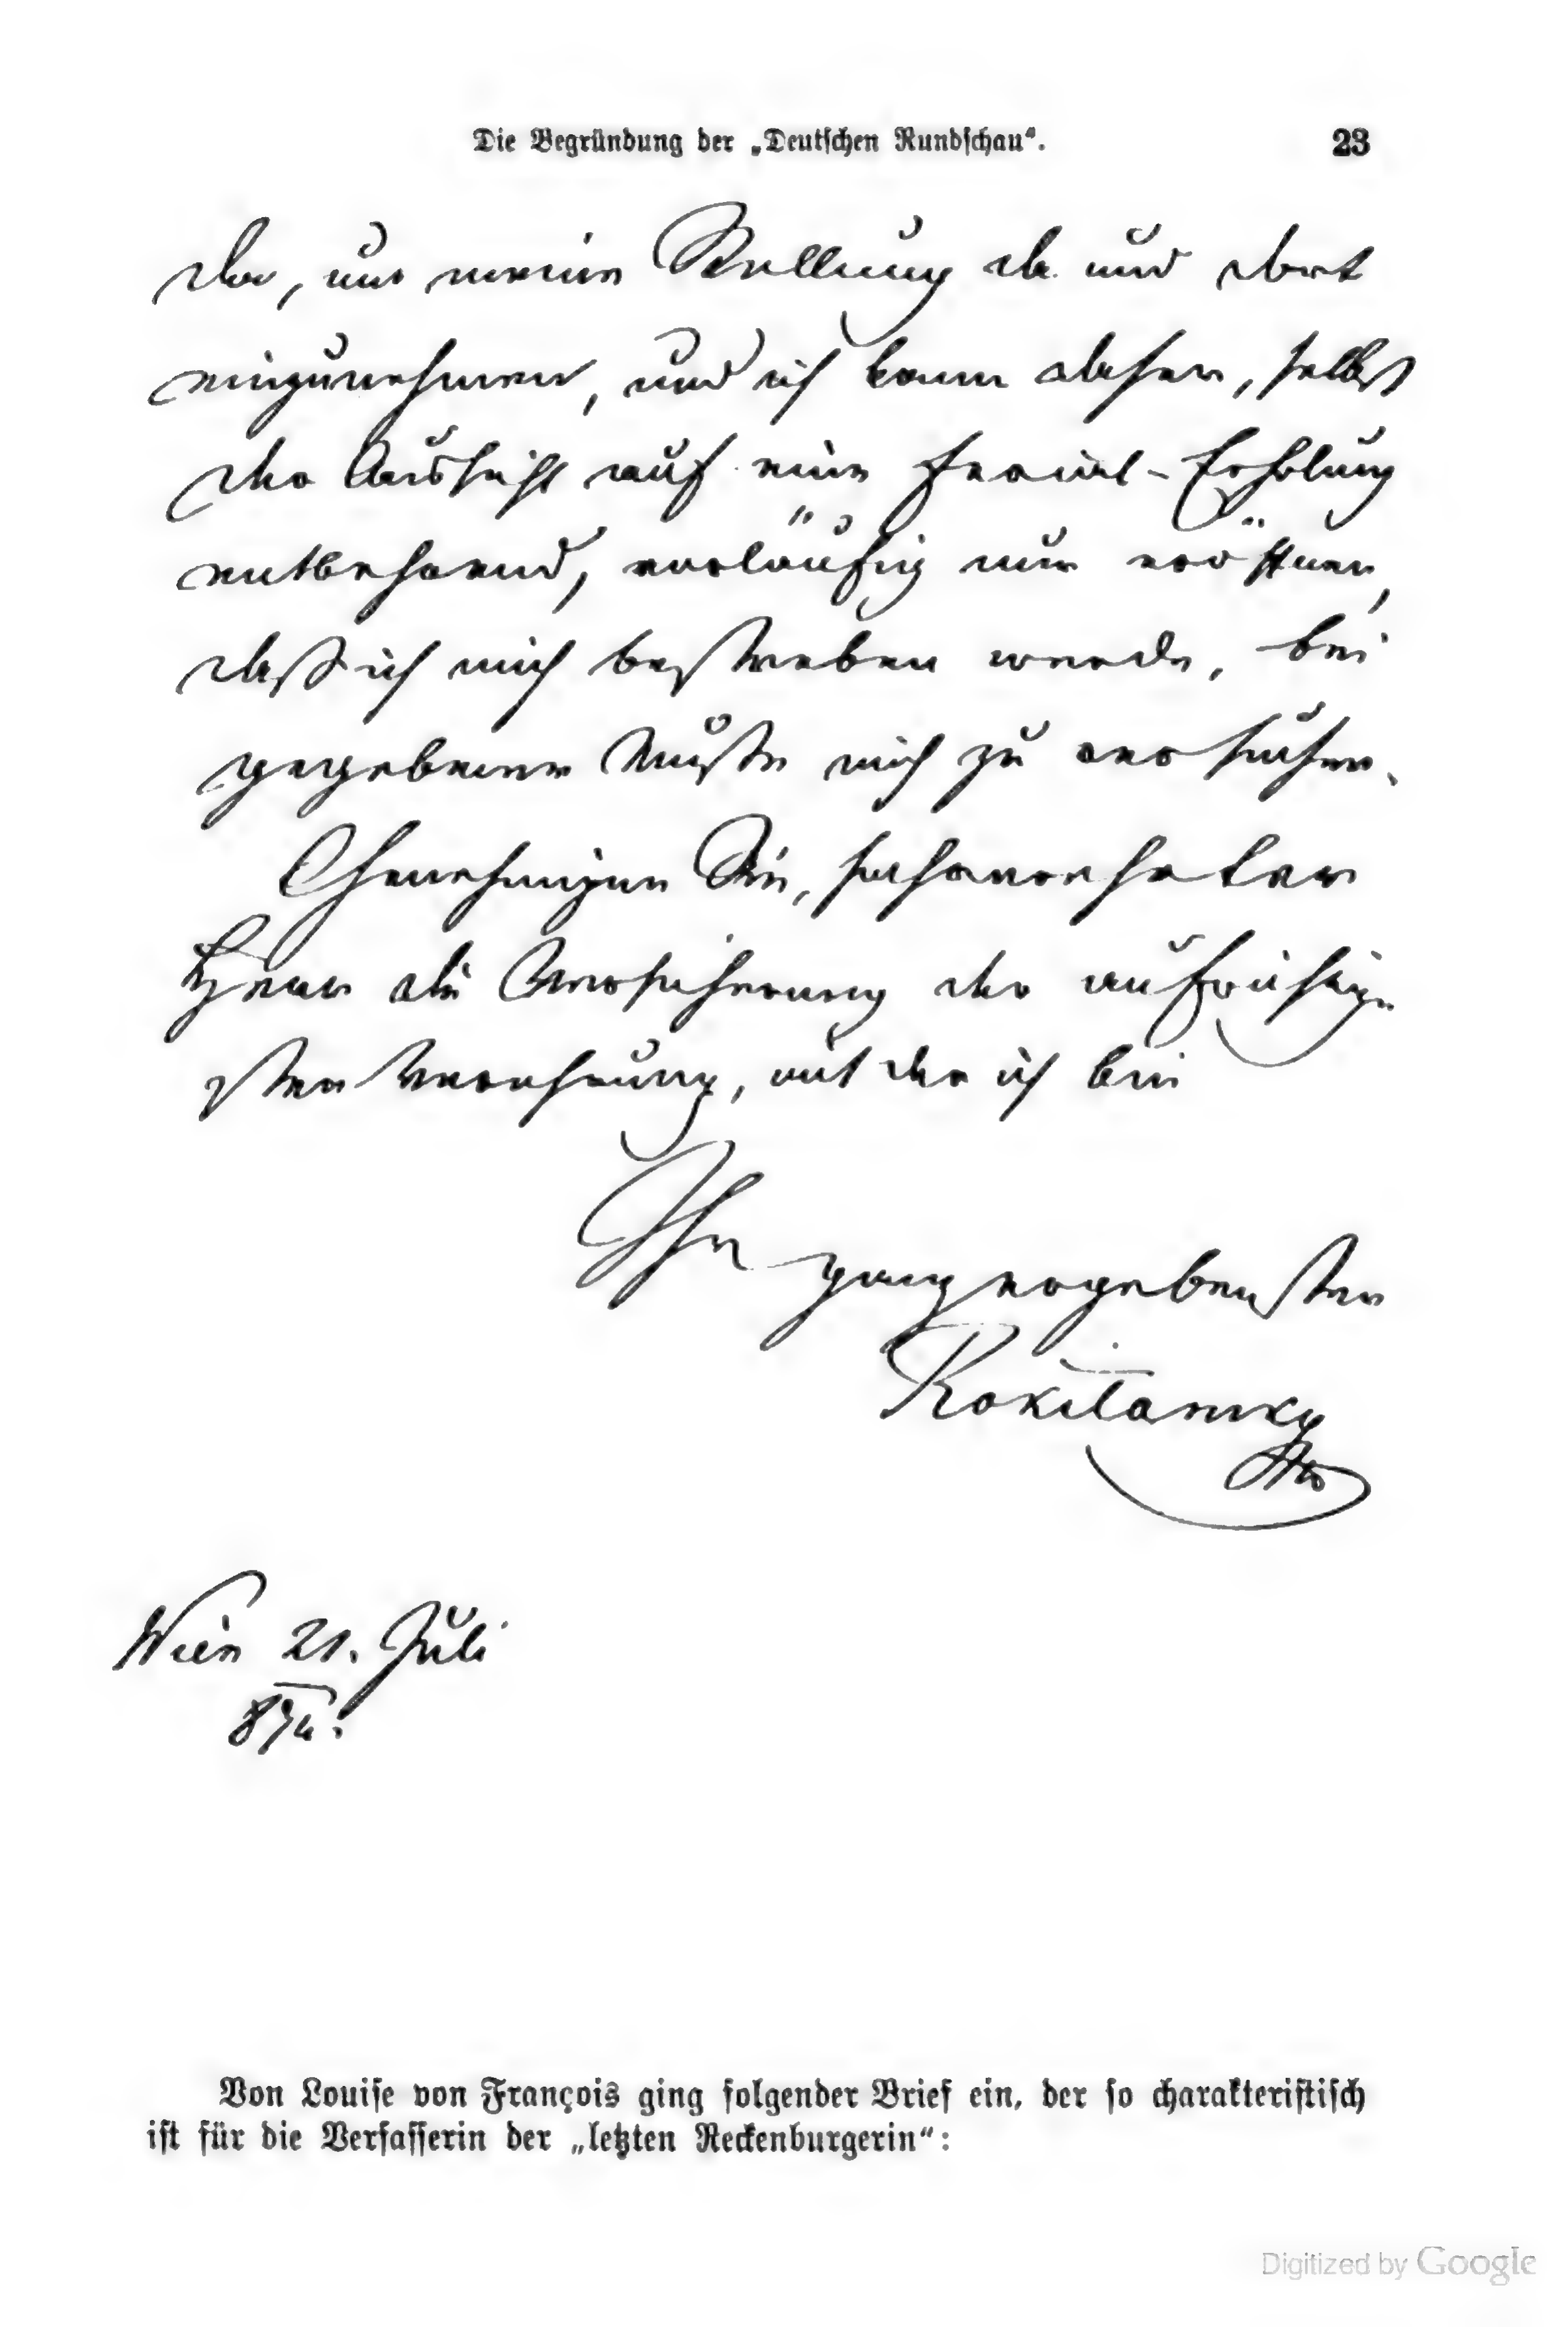 Die Begründung der „Deutschen Rundschau“. 23
da, um meine Stellung da und dort
einzunehmen, und ich kann daher, selbst
der Aussicht auf eine Ferial-Erholung
entbehrend, vorläufig nur eröffnen,
daß ich mich bestreben werde, bei
gegebener Muße mich zu versuchen.
Genehmigen Sie, hochverehrter
Herr die Versicherung der aufrichtig-
sten Verehrung, mit der ich bin
Ihr ganz ergebenster
Rokitansky
Wien 21. Juli
874.
Von Louise von François ging folgender Brief ein, der so charakteristisch
ist für die Verfasserin der „letzten Reckenburgerin“:
Digitized by Google